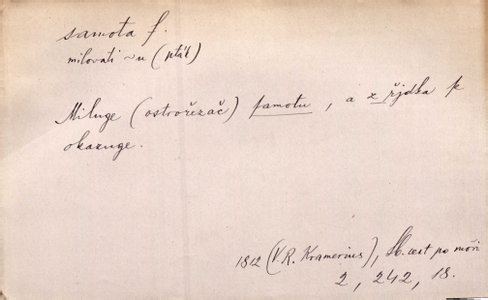 samota f.
milovati ~u (pták)
Miluge (ostrořezač) samotu, a z řjdka
okazuge.
1812 (V. R. Kramerius), Sb. cest po moři
2, 242, 18.